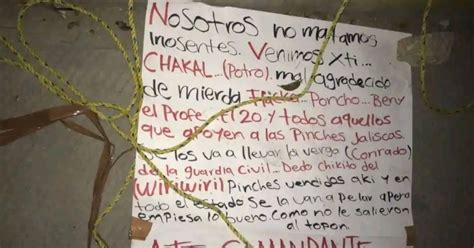 NOSOTROS no matamos
Inosentes. Venimos xti...
CHAKAL...(Potro). malagradecido
de mierda Poncho... Beny
el Profe. El 20. y todos aquellos
que apoyen a las Pinches Jaliscas.
se los va a llevar la verga (Conrado)
de la guardia Civil... Dedo Chikito del
(Wiriwiri) Pinches vendidos aki y en
todo el estado se la van a pelar apenas
empiesa lo bueno. Como no le salieron
al topon.
ATTE. COMANDANTE